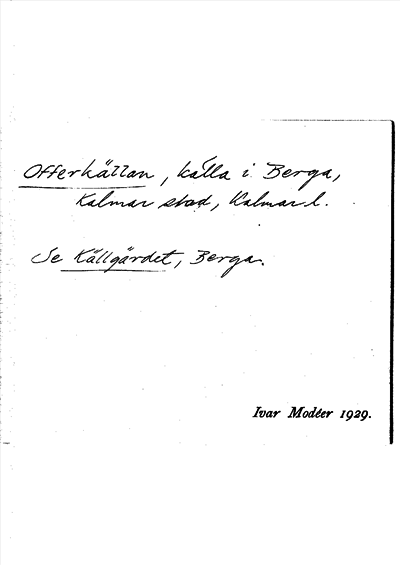 Offerkällan, källa i Berga,
Kalmar stad, Kalmar l.
Se Källgärdet, Berga.
Ivar Modéer 1929.